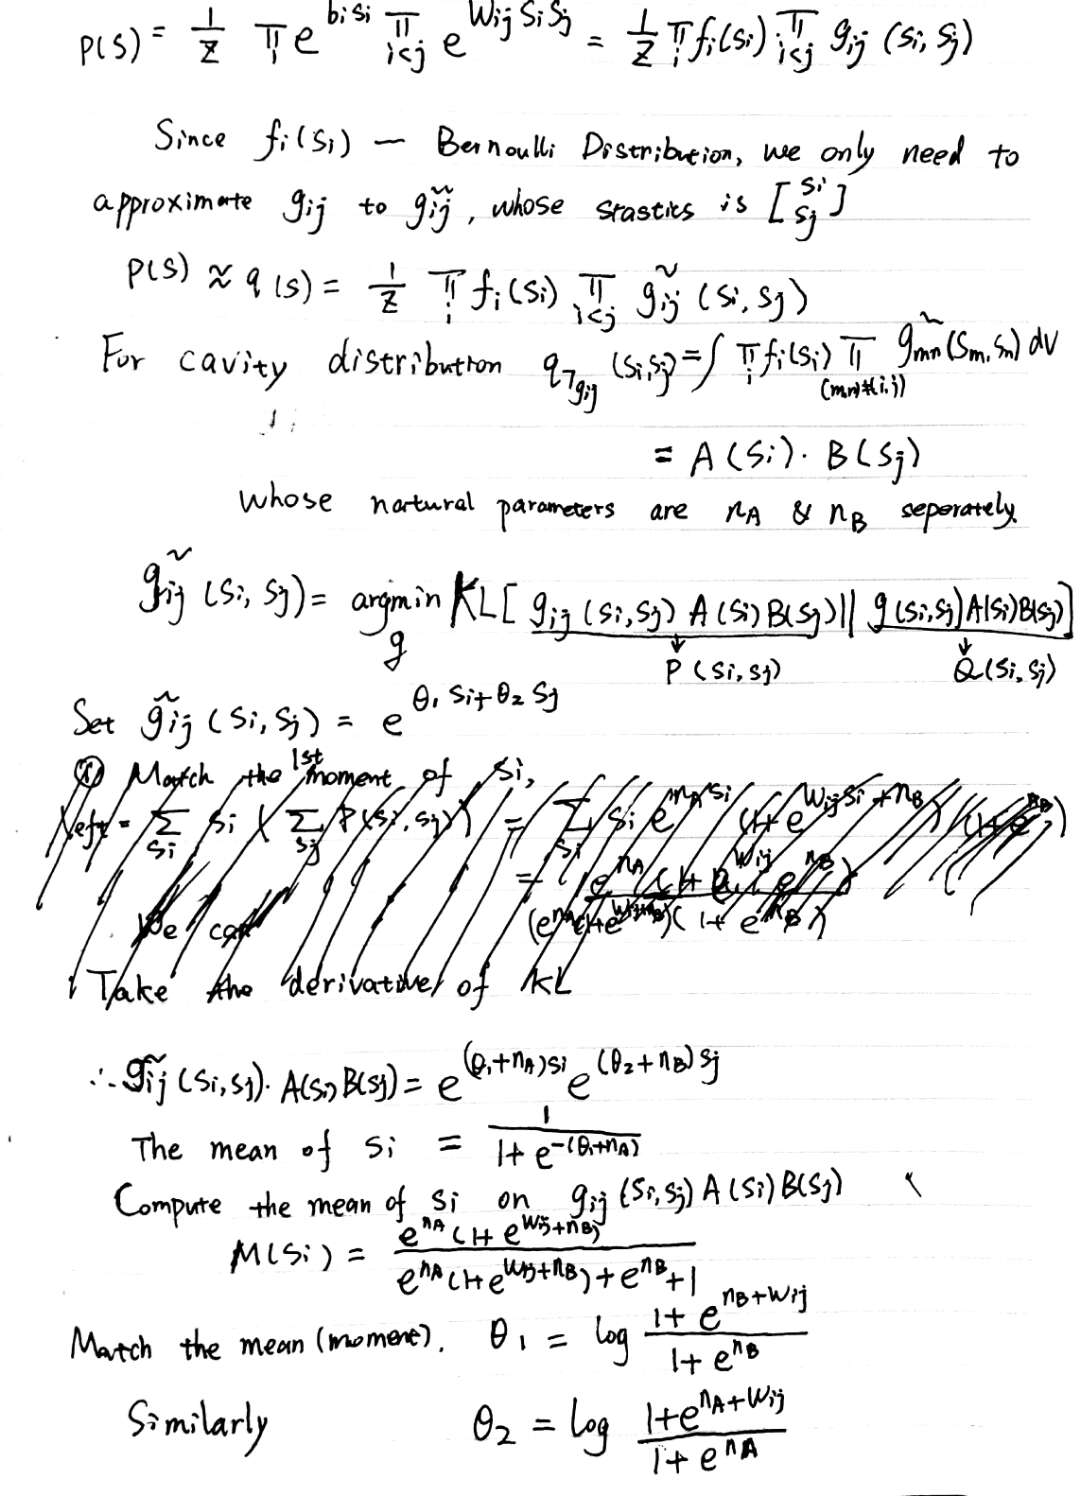 P(S) = 1/Z ∏_i e^{b_i s_i} ∏_{i<j} e^{W_ij S_i S_j} = 1/Z ∏_i f_i(S_i) ∏_{i<j} g_ij (S_i, S_j)
Since f_i(S_i) — Bernoulli Distribution, we only need to
approximate g_ij to g̃_ij, whose stastics is [S_i S_j]
P(S) ≈ q(S) = 1/Z ∏_i f_i(S_i) ∏_{i<j} g̃_ij (S_i, S_j)
For cavity distribution q_{¬g_ij} (S_i,S_j) = ∫ ∏_i f_i(S_i) ∏_{(m,n)≠(i,j)} g̃_mn (S_m, S_n) dV
= A(S_i) · B(S_j)
whose natural parameters are n_A & n_B seperately.
g̃_ij (S_i, S_j) = argmin_g KL[ g_ij (S_i,S_j) A(S_i) B(S_j) || g(S_i,S_j) A(S_i) B(S_j)]
↓ P(S_i, S_j) ↓ Q(S_i, S_j)
Set g̃_ij (S_i, S_j) = e^{θ_1 S_i + θ_2 S_j}
① Match the 1st moment of S_i,
Left = Σ_{S_i} S_i ( Σ_{S_j} P(S_i, S_j) ) = Σ_{S_i} S_i e^{n_A S_i} (1+e^{W_ij S_i + n_B})
We can
Take the derivative of KL
∴ g̃_ij (S_i,S_j) · A(S_i) B(S_j) = e^{(θ_1+n_A)S_i} e^{(θ_2+n_B)S_j}
The mean of S_i = 1 / (1+e^{-(θ_1+n_A)})
Compute the mean of S_i on g_ij (S_i,S_j) A(S_i) B(S_j)
M(S_i) = e^{n_A}(1+e^{W_ij+n_B}) / (e^{n_A}(1+e^{W_ij+n_B})+e^{n_B}+1)
Match the mean (moment). θ_1 = log (1+e^{n_B+W_ij}) / (1+e^{n_B})
Similarly θ_2 = log (1+e^{n_A+W_ij}) / (1+e^{n_A})